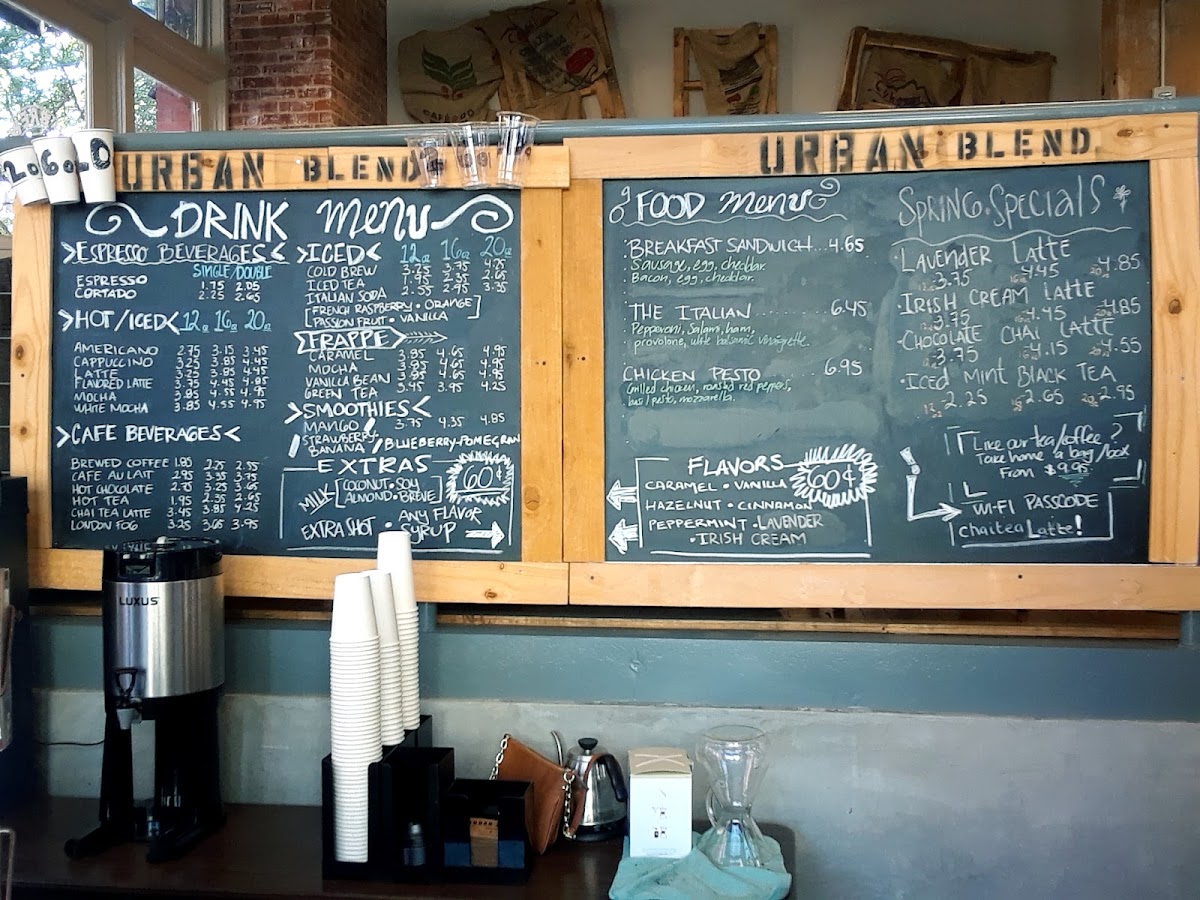 URBAN BLEND
DRINK menu
ESPRESSO BEVERAGES
SINGLE/DOUBLE
ESPRESSO 1.75 2.05
CORTADO 2.25 2.65
HOT/ICED 12oz 16oz 20oz
AMERICANO 2.75 3.15 3.45
CAPPUCCINO 3.25 3.85 4.45
LATTE 3.25 3.85 4.45
FLAVORED LATTE 3.75 4.45 4.85
MOCHA 3.85 4.55 4.95
WHITE MOCHA 3.85 4.55 4.95
CAFE BEVERAGES
BREWED COFFEE 1.85 2.25 2.55
CAFE AU LAIT 2.95 3.35 3.75
HOT CHOCOLATE 2.75 3.25 3.65
HOT TEA 1.95 2.35 2.65
CHAI TEA LATTE 3.45 3.85 4.25
LONDON FOG 3.25 3.65 3.95
ICED 12oz 16oz 20oz
COLD BREW 3.25 3.75 4.25
ICED TEA 1.95 2.35 2.65
ITALIAN SODA 2.55 2.95 3.35
FRENCH RASPBERRY • ORANGE
PASSION FRUIT • VANILLA
FRAPPE
CARAMEL 3.85 4.65 4.95
MOCHA 3.85 4.65 4.95
VANILLA BEAN 3.85 4.65 4.95
GREEN TEA 3.45 3.95 4.25
SMOOTHIES
MANGO / 3.75 4.35 4.85
STRAWBERRY-
BANANA / BLUEBERRY-POMEGRAN
EXTRAS
60¢
MILK COCONUT • SOY
ALMOND • BREVE
EXTRA SHOT • ANY FLAVOR
SYRUP
URBAN BLEND
FOOD menu
BREAKFAST SANDWICH...4.65
Sausage, egg, cheddar.
Bacon, egg, cheddar.
THE ITALIAN ........... 6.45
Pepperoni, Salami, ham,
provolone, balsamic vinaigrette.
CHICKEN PESTO ........ 6.95
Grilled chicken, roasted red peppers,
basil pesto, mozzarella.
FLAVORS
60¢
CARAMEL • VANILLA
HAZELNUT • CINNAMON
PEPPERMINT • LAVENDER
• IRISH CREAM
SPRING SPECIALS
• LAVENDER LATTE
3.75 4.45 4.85
• IRISH CREAM LATTE
3.75 4.45 4.85
• CHOCOLATE CHAI LATTE
3.75 4.15 4.55
• ICED MINT BLACK TEA
2.25 2.65 2.95
Like our tea/coffee?
Take home a bag/box
From $9.95
WI-FI PASSCODE
chaiteaLatte!
LUXUS